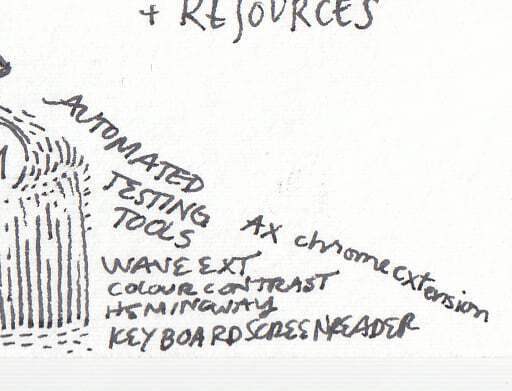 + RESOURCES
AUTOMATED
TESTING
TOOLS
AX chrome extension
WAVE EXT
COLOUR CONTRAST
HEMINGWAY
KEYBOARD SCREENREADER